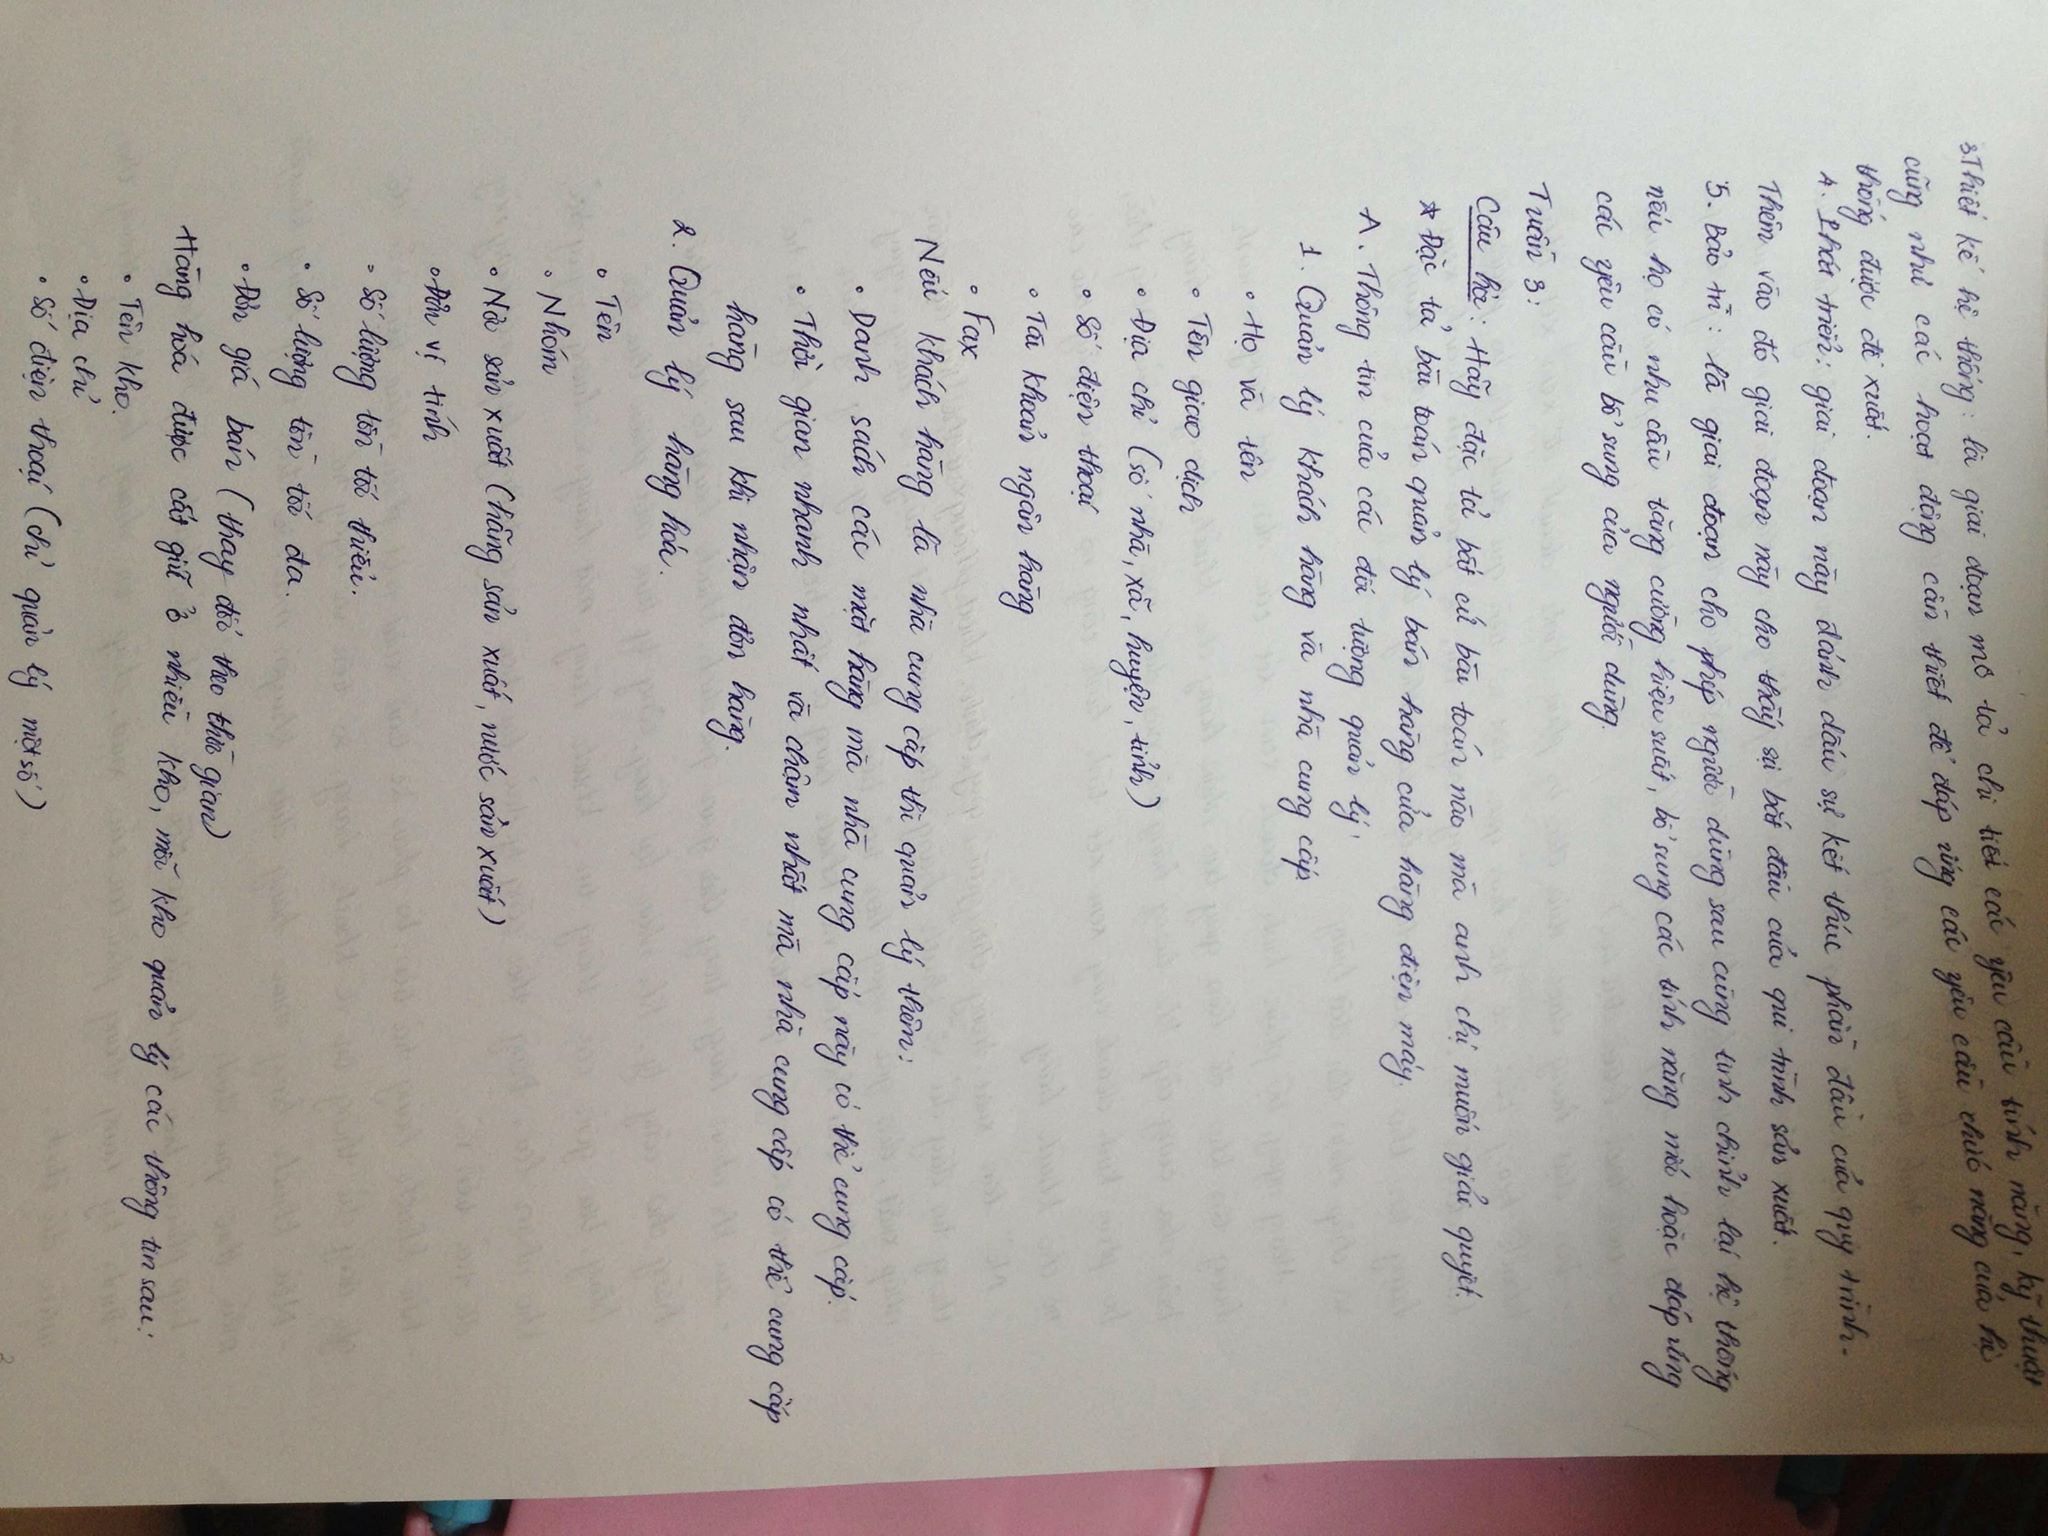 3. Thiết kế hệ thống: là giai đoạn mô tả chi tiết các yêu cầu tính năng, kỹ thuật
cũng như các hoạt động cần thiết để đáp ứng các yêu cầu chức năng của hệ
thống được đề xuất.
4. Phát triển: giai đoạn này đánh dấu sự kết thúc phần đầu của quy trình.
Thêm vào đó giai đoạn này cho thấy sự bắt đầu của qui trình sản xuất.
5. Bảo trì: là giai đoạn cho phép người dùng sau cùng tinh chỉnh lại hệ thống
nếu họ có nhu cầu tăng cường hiệu suất, bổ sung các tính năng mới hoặc đáp ứng
các yêu cầu bổ sung của người dùng.
Tuần 3:
Câu hỏi: Hãy đặc tả bất cứ bài toán nào mà anh chị muốn giải quyết.
* Đặc tả bài toán quản lý bán hàng của hàng điện máy.
A. Thông tin của các đối tượng quản lý:
1. Quản lý khách hàng và nhà cung cấp.
• Họ và tên
• Tên giao dịch
• Địa chỉ (số nhà, xã, huyện, tỉnh)
• Số điện thoại
• Tài khoản ngân hàng
• Fax
Nếu khách hàng là nhà cung cấp thì quản lý thêm:
• Danh sách các mặt hàng mà nhà cung cấp này có thể cung cấp.
• Thời gian nhanh nhất và chậm nhất mà nhà cung cấp có thể cung cấp
hàng sau khi nhận đơn hàng.
2. Quản lý hàng hóa.
• Tên
• Nhóm
• Nơi sản xuất (hãng sản xuất, nước sản xuất)
• Đơn vị tính
• Số lượng tồn tối thiểu.
• Số lượng tồn tối đa.
• Đơn giá bán (thay đổi theo thời gian)
Hàng hoá được cất giữ ở nhiều kho, mỗi kho quản lý các thông tin sau:
• Tên kho.
• Địa chỉ
• Số điện thoại (chỉ quản lý một số)